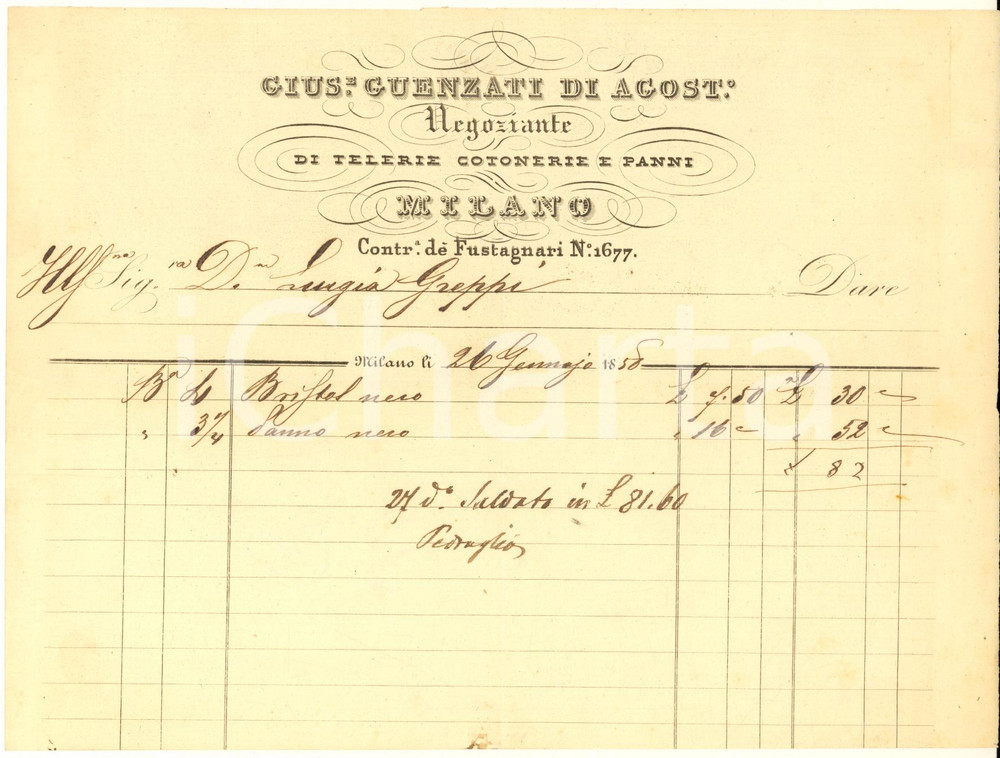 GIUS.E GUENZATI DI AGOST.O
Negoziante
DI TELERIE COTONERIE E PANNI
MILANO
Contr.a dè Fustagnari N.o 1677.
Ill.ma Sig.ra D.na Luigia Greppi Dare
Milano li 26 Gennajo 1858
Ba 4 Bristol nero £ 7.50 £ 30 "
" 3 1/4 Panno nero " 16 " " 52 "
£ 82
27 do. Saldato in £ 81.60
Pedraglio
iCharta